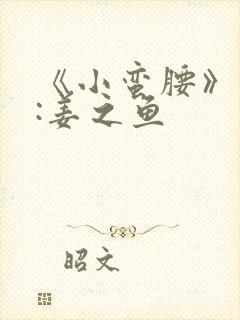 《小蛮腰》
:姜之鱼
昭文